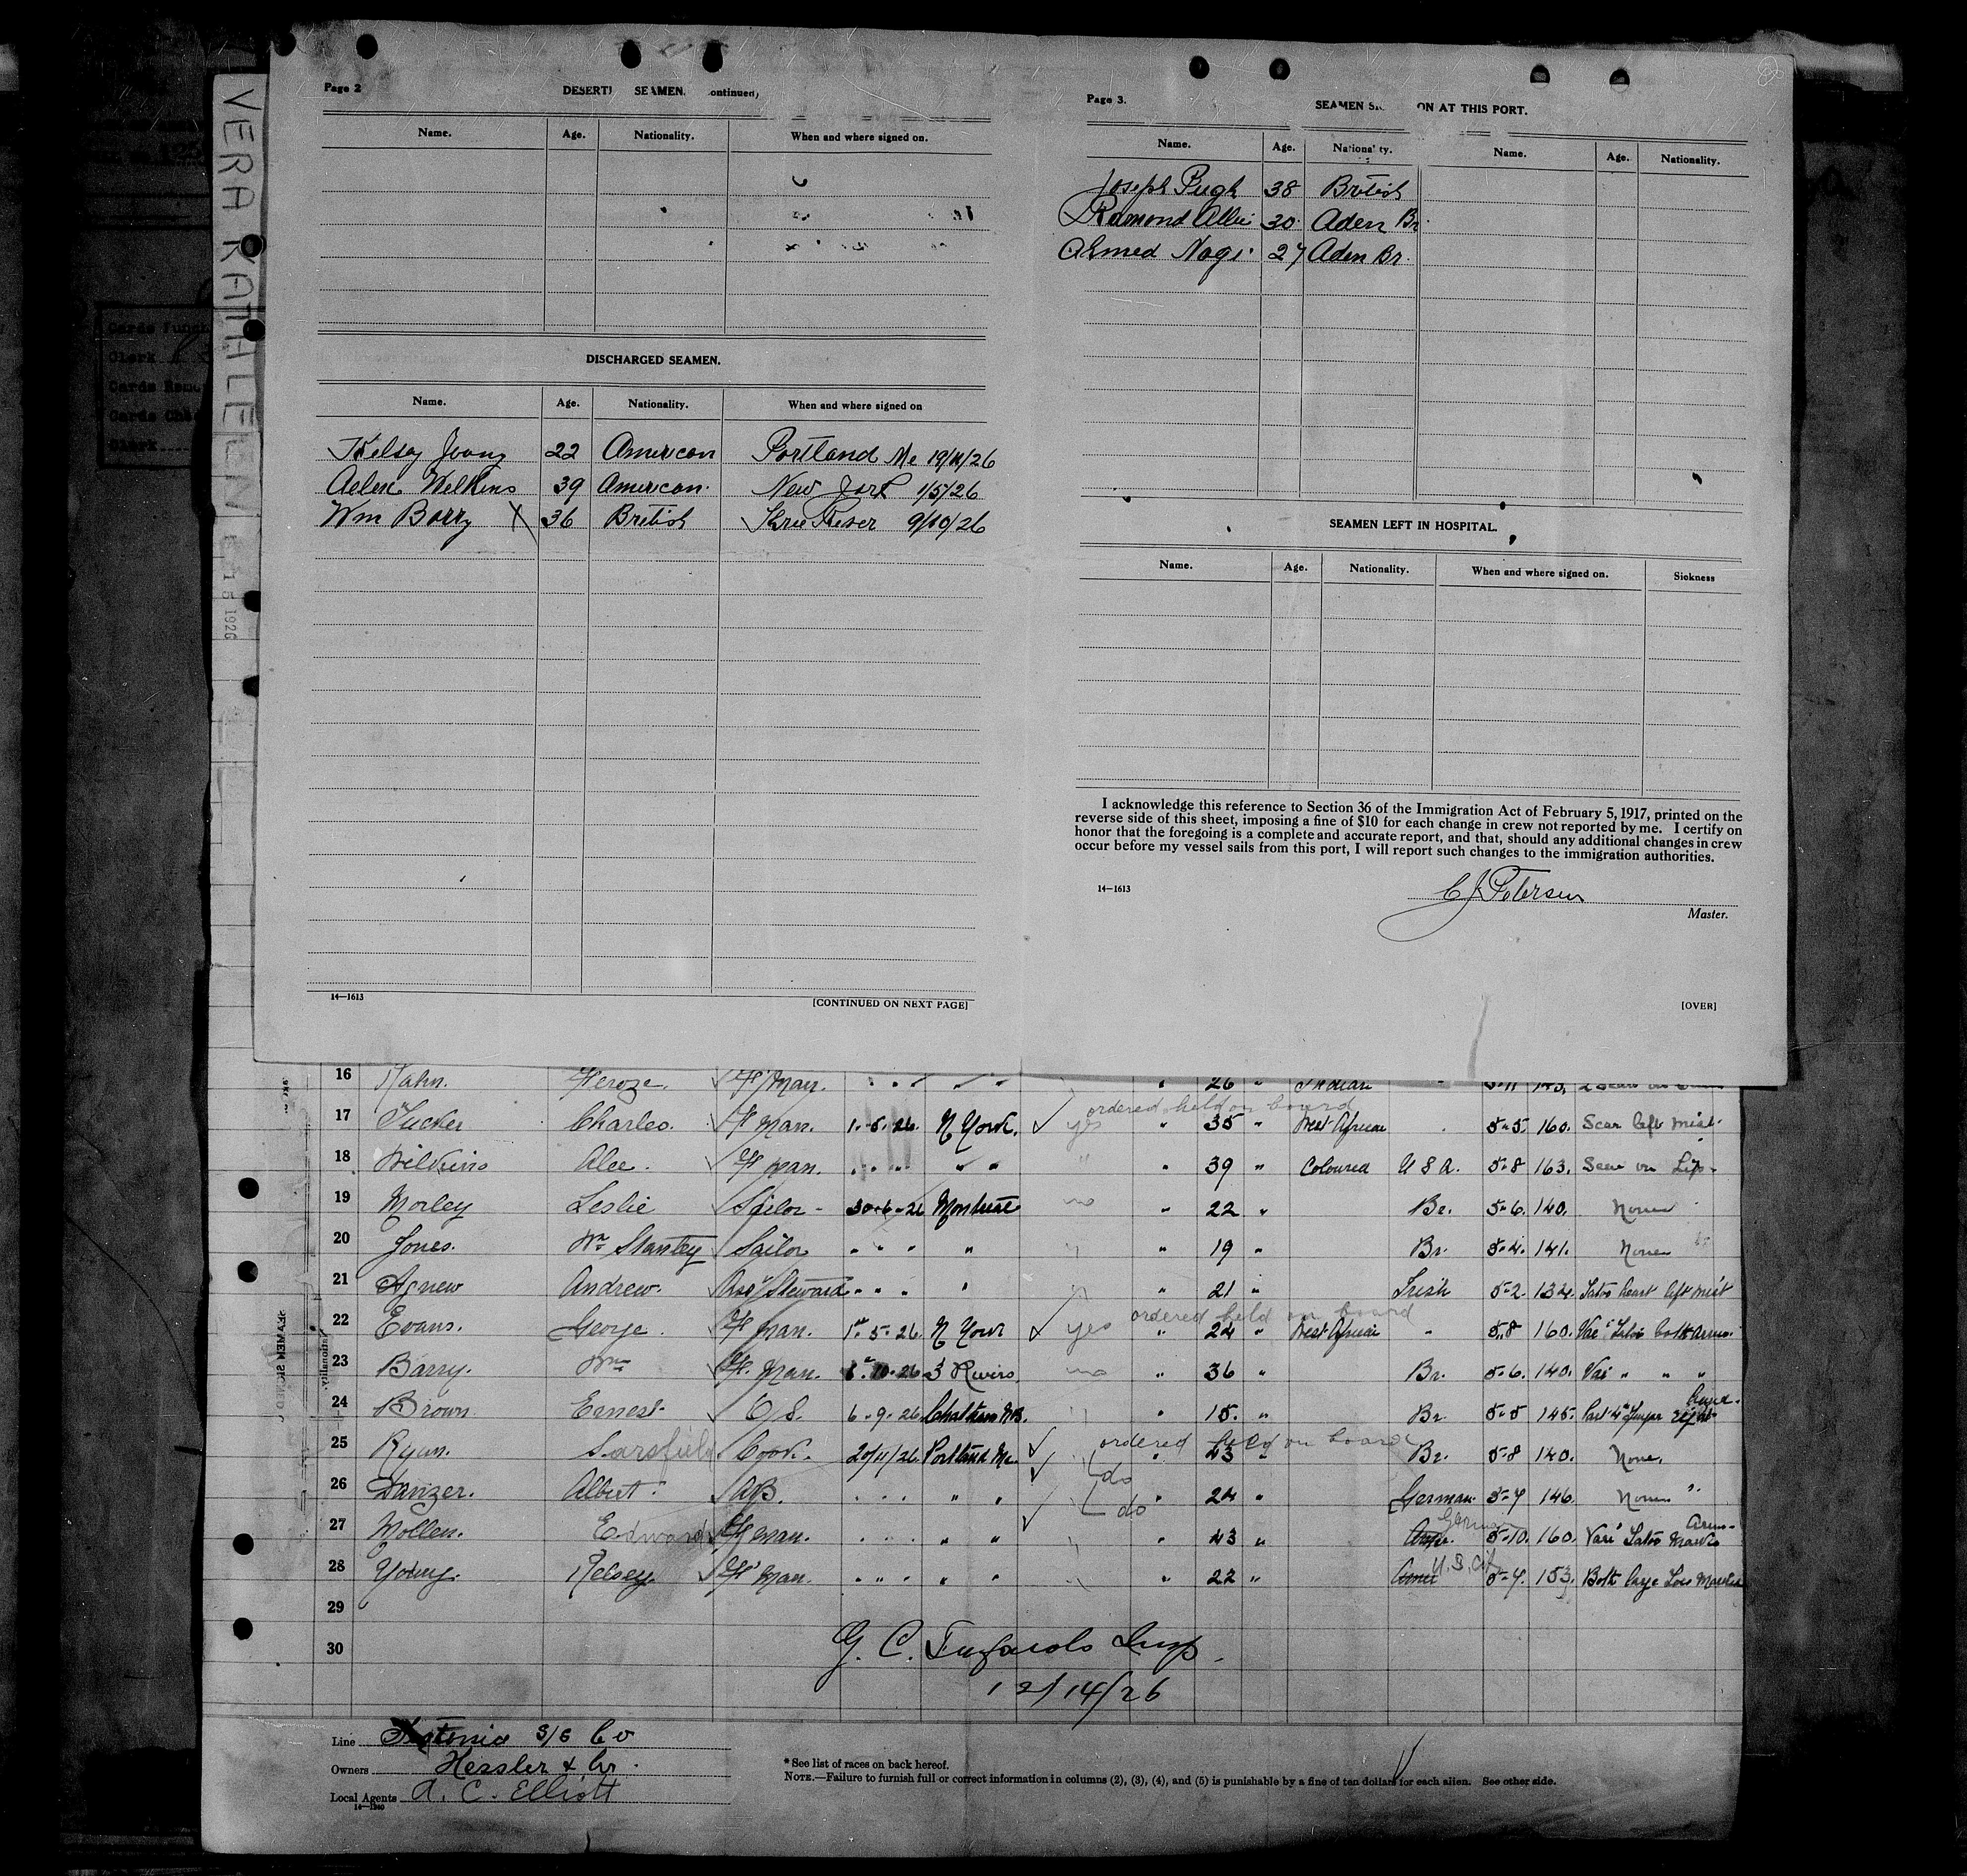 VERA KATHLEEN
15 1926
Page 2
SEAMEN.
Name. Age. Nationality. When and where signed on.
DISCHARGED SEAMEN.
Name. Age. Nationality. When and where signed on
Kelsey Young 22 American Portland Me 19/11/26
Wilkins 39 American. New York 1/5/26
Wm Barry X 36 British Three River 9/10/26
14—1613 [CONTINUED ON NEXT PAGE]
Page 3.
SEAMEN ON AT THIS PORT.
Name. Age. Name. Age. Nationality.
Joseph Pugh 38 British
Ramond Allie 30 Aden Br.
Ahmed Nagi 27 Aden Br.
SEAMEN LEFT IN HOSPITAL.
Name. Age. Nationality. When and where signed on. Sickness
I acknowledge this reference to Section 36 of the Immigration Act of February 5, 1917, printed on the
reverse side of this sheet, imposing a fine of $10 for each change in crew not reported by me. I certify on
honor that the foregoing is a complete and accurate report, and that, should any additional changes in crew
occur before my vessel sails from this port, I will report such changes to the immigration authorities.
14—1613 C J Petersen
Master.
[OVER]
16 Kahn. Feroze. F'man. " " " " 26 " Indian
ordered held on board
17 Tucker Charles. F'man. 1.5.26. N York. yes " 35 " West African 5-5. 160. Scar left
18 Wilkins Alec. F'man. " " " " " " 39 " Coloured U S A. 5-8 163. Scar on Lip.
19 Morley Leslie Sailor 30-6-26 Montreal no " 22 " Br. 5-6. 140. None
20 Jones. Wm Stanley Sailor " " " " " 19 " Br. 5-4. 141. None
21 Agnew Andrew. Ass' Steward " " " " " 21 " Irish 5-2. 134. Tatoo heart left wrist
ordered held on board
22 Evans. George. F'man. 1-5-26. N York yes " 24 " West African " 5-8 160. Tatoo both arms.
23 Barry. Wm F. Man. 10.26 3 Rivers no " 36 " Br. 5-6. 140. " " "
24 Brown Ernest. O/S. 6.9.26 Chatham NB. " 15. " Br. 5-5 145.
ordered held on board
25 Ryan. Sarsfield Cook. 20/11/26 Portland Me. " 43 " Br. 5-8 140. None.
26 Danzer. Albert. AB. " " " " " do " 24 " German. 5-7 146. None
27 Mollen. Edward F'man. " " " " " do " 43 " German 5-10. 160.
28 Young. Kelsey F'man. " " " " " " 22 " U.S. Cit 5-7. 153.
29
30
G. C. Insp.
12/14/26
Line S/S Co
Owners Hessler & Co.
Local Agents A. C. Elliott
* See list of races on back hereof.
NOTE.—Failure to furnish full or correct information in columns (2), (3), (4), and (5) is punishable by a fine of ten dollars for each alien. See other side.